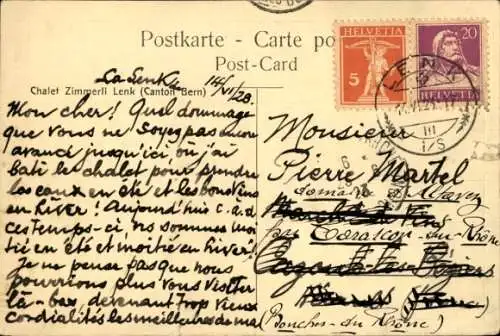 Postkarte - Carte po
Post-Card
HELVETIA
5
20
HELVETIA
LENK
La Lenk 14/VI/28.
Chalet Zimmerli Lenk (Canton Bern)
Mon cher! Quel dommage
que vous ne soyez pas encore
avancé jusqu'ici où j'ai
bâti le chalet pour prendre
les eaux en été et les bons vins
en hiver! Aujourd'huis c.a.d.
ces temps-ci, nous sommes moi-
tié en été et moitié en hiver!
Je ne pense pas que nous
pourrions plus vous visiter
là-bas, devenant trop vieux
cordialités les meilleures de ma
Monsieur
Pierre Martel
domaine
par Tarascon-du-Rhône
(Bouches-du Rhône)